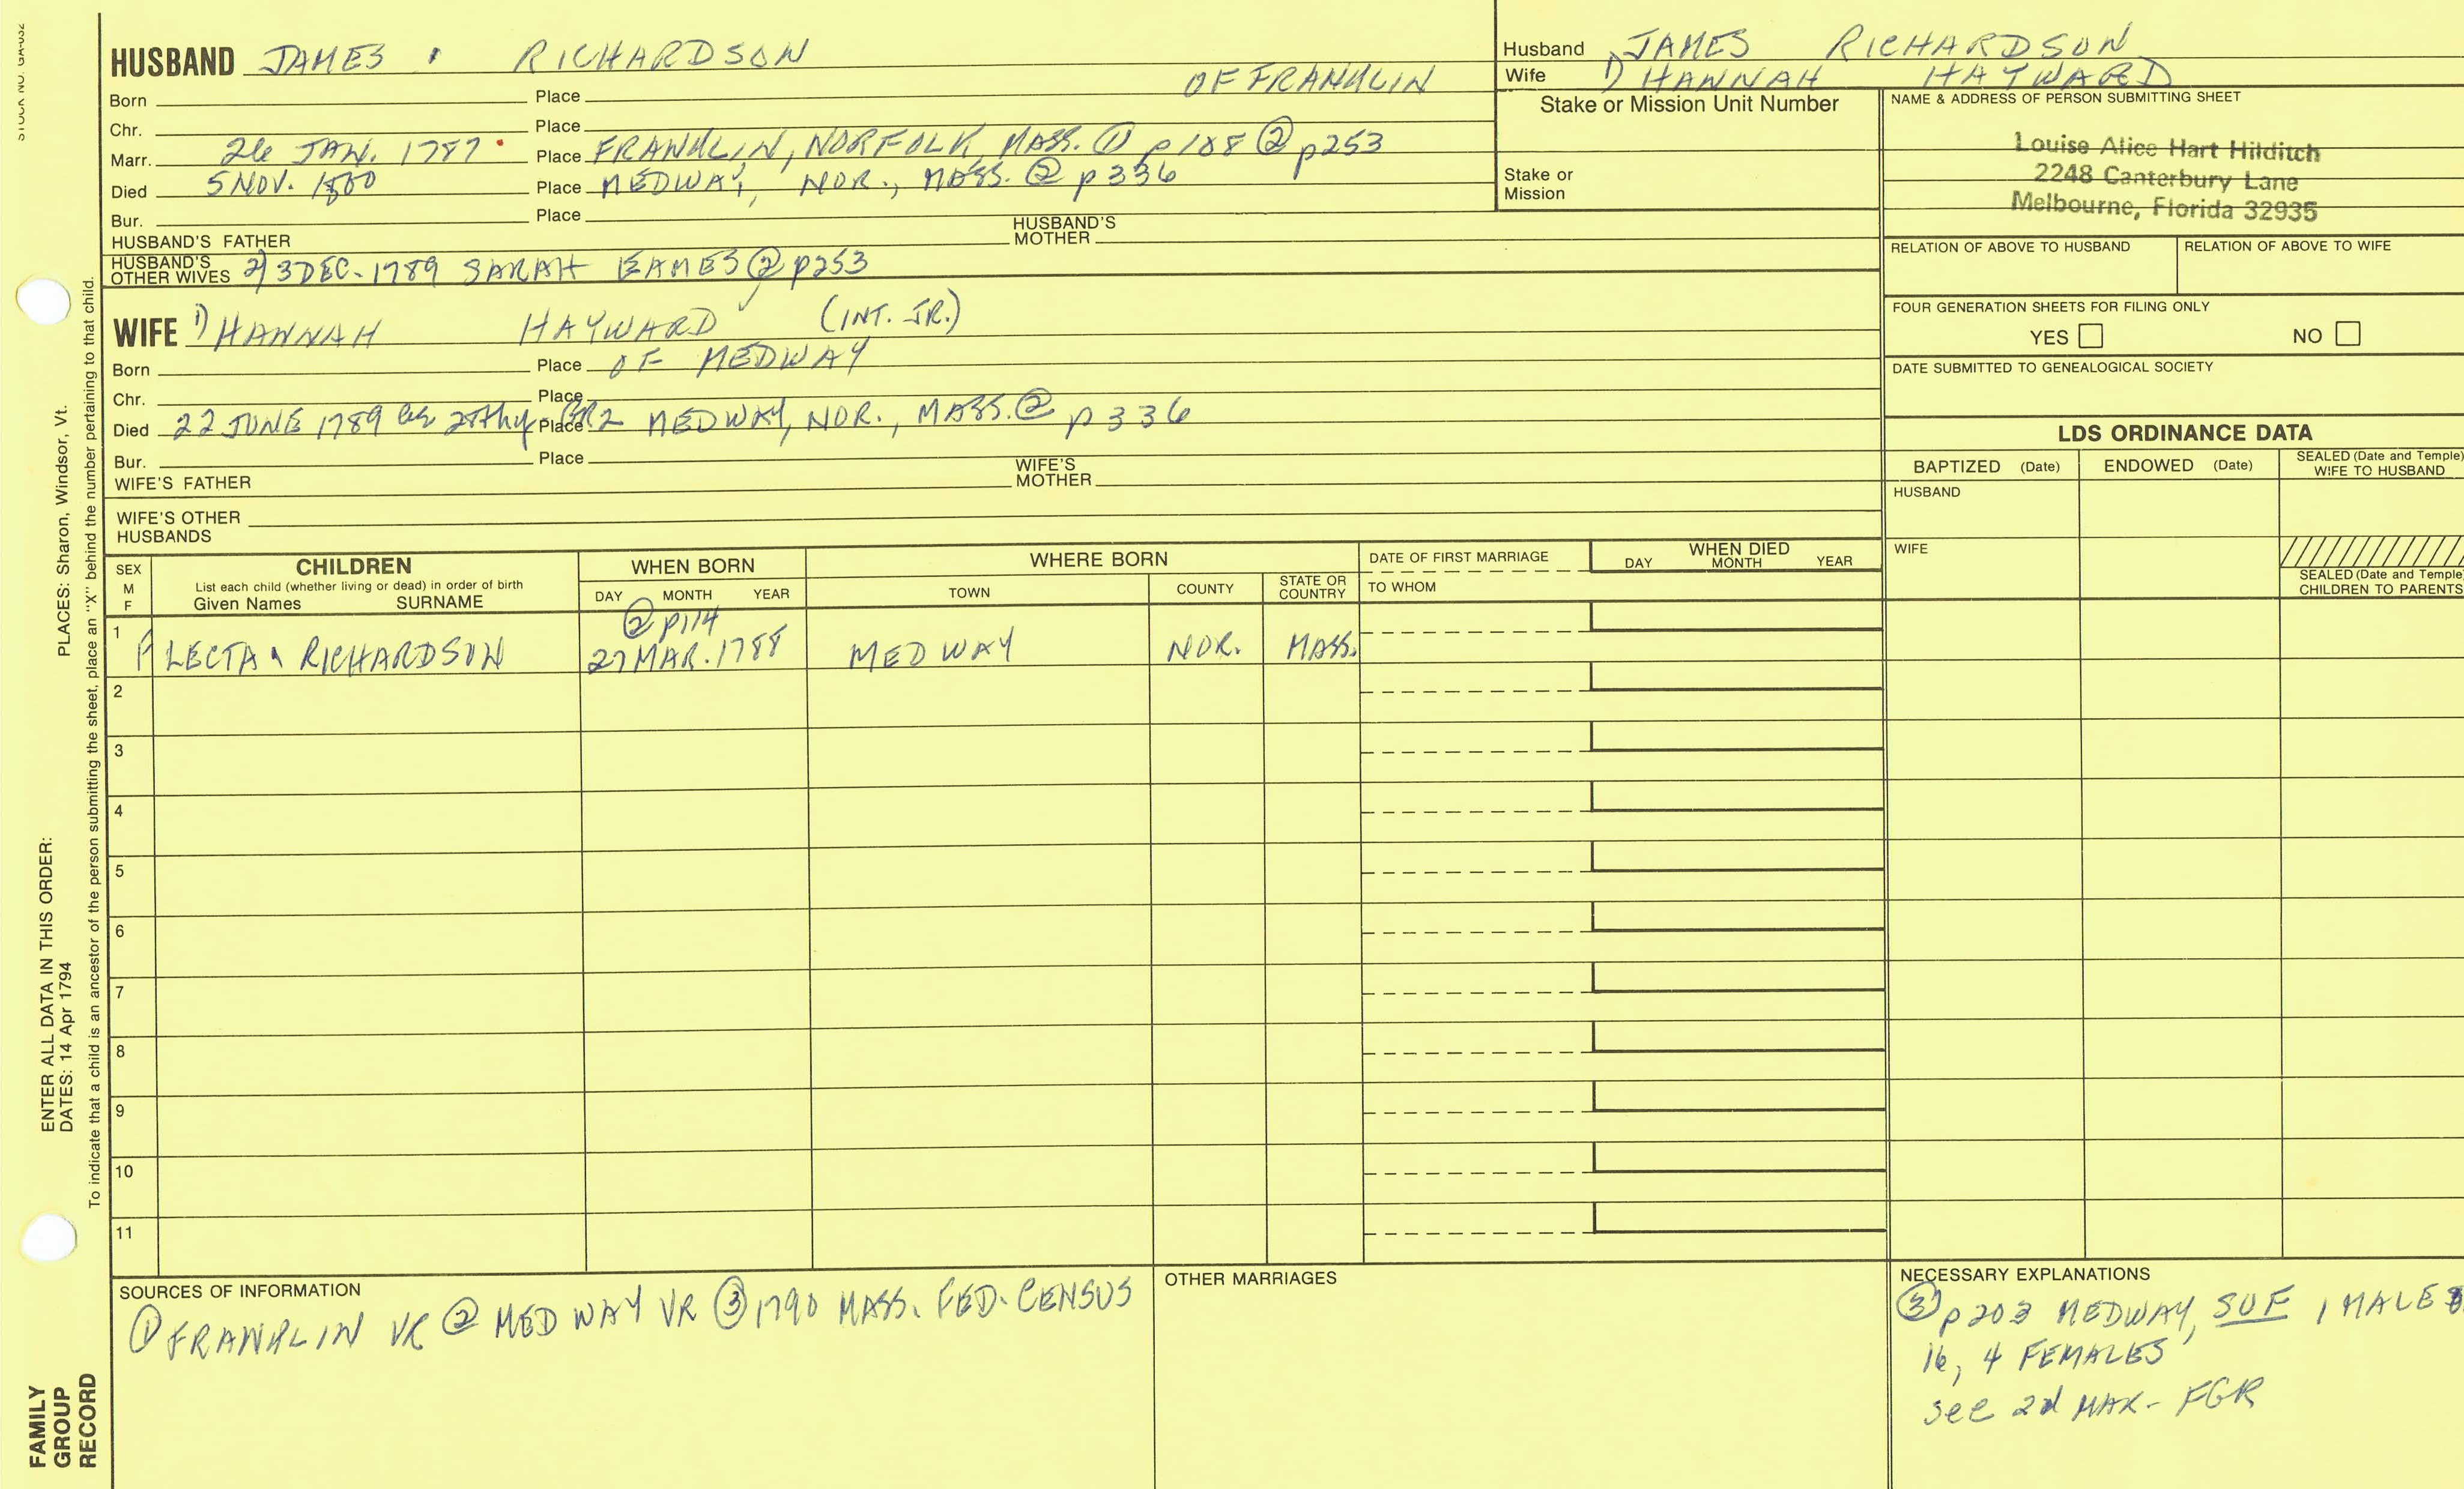 STOCK NO. GA-032
HUSBAND JAMES RICHARDSON
OF FRANKLIN
Born Place
Chr. Place
Marr. 26 JAN. 1787 Place FRANKLIN, NORFOLK, MASS. ① p188 ② p253
Died 5 NOV. 1800 Place MEDWAY, NOR., MASS. ② p336
Bur. Place
HUSBAND'S FATHER HUSBAND'S MOTHER
HUSBAND'S OTHER WIVES 2) 3 DEC. 1789 SARAH EAMES ② p253
WIFE 1) HANNAH HAYWARD (INT. JR.)
Born Place OF MEDWAY
Chr. Place
Died 22 JUNE 1789 Place GR2 MEDWAY, NOR., MASS. ② p336
Bur. Place
WIFE'S FATHER WIFE'S MOTHER
WIFE'S OTHER HUSBANDS
Husband JAMES RICHARDSON
Wife 1) HANNAH HAYWARD
Stake or Mission Unit Number
Stake or Mission
NAME & ADDRESS OF PERSON SUBMITTING SHEET
Louise Alice Hart Hilditch
2248 Canterbury Lane
Melbourne, Florida 32935
RELATION OF ABOVE TO HUSBAND RELATION OF ABOVE TO WIFE
FOUR GENERATION SHEETS FOR FILING ONLY
YES NO
DATE SUBMITTED TO GENEALOGICAL SOCIETY
LDS ORDINANCE DATA
BAPTIZED (Date) ENDOWED (Date) SEALED (Date and Temple) WIFE TO HUSBAND
HUSBAND
WIFE
SEALED (Date and Temple) CHILDREN TO PARENTS
SEX M F
CHILDREN
List each child (whether living or dead) in order of birth
Given Names SURNAME
WHEN BORN
DAY MONTH YEAR
WHERE BORN
TOWN COUNTY STATE OR COUNTRY
DATE OF FIRST MARRIAGE
TO WHOM
WHEN DIED
DAY MONTH YEAR
② p114
1 F LECTA RICHARDSON 27 MAR. 1788 MEDWAY NOR. MASS.
2
3
4
5
6
7
8
9
10
11
SOURCES OF INFORMATION
① FRANKLIN VR ② MEDWAY VR ③ 1790 MASS. FED. CENSUS
OTHER MARRIAGES
NECESSARY EXPLANATIONS
③ p203 MEDWAY, SUF 1 MALE
16, 4 FEMALES
see 2d MAR - FGR
PLACES: Sharon, Windsor, Vt.
To indicate that a child is an ancestor of the person submitting the sheet, place an "X" behind the number pertaining to that child.
ENTER ALL DATA IN THIS ORDER:
DATES: 14 Apr 1794
FAMILY
GROUP
RECORD